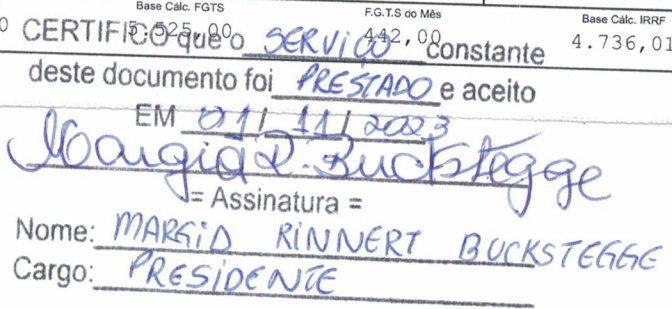 Base Cálc. FGTS F.G.T.S do Mês Base Cálc. IRRF
5.525,00 442,00 4.736,01
CERTIFICO que o SERVIÇO constante
deste documento foi PRESTADO e aceito
EM 01/11/2023
Margid R. Buckstegge
= Assinatura =
Nome: MARGID RINNERT BUCKSTEGGE
Cargo: PRESIDENTE